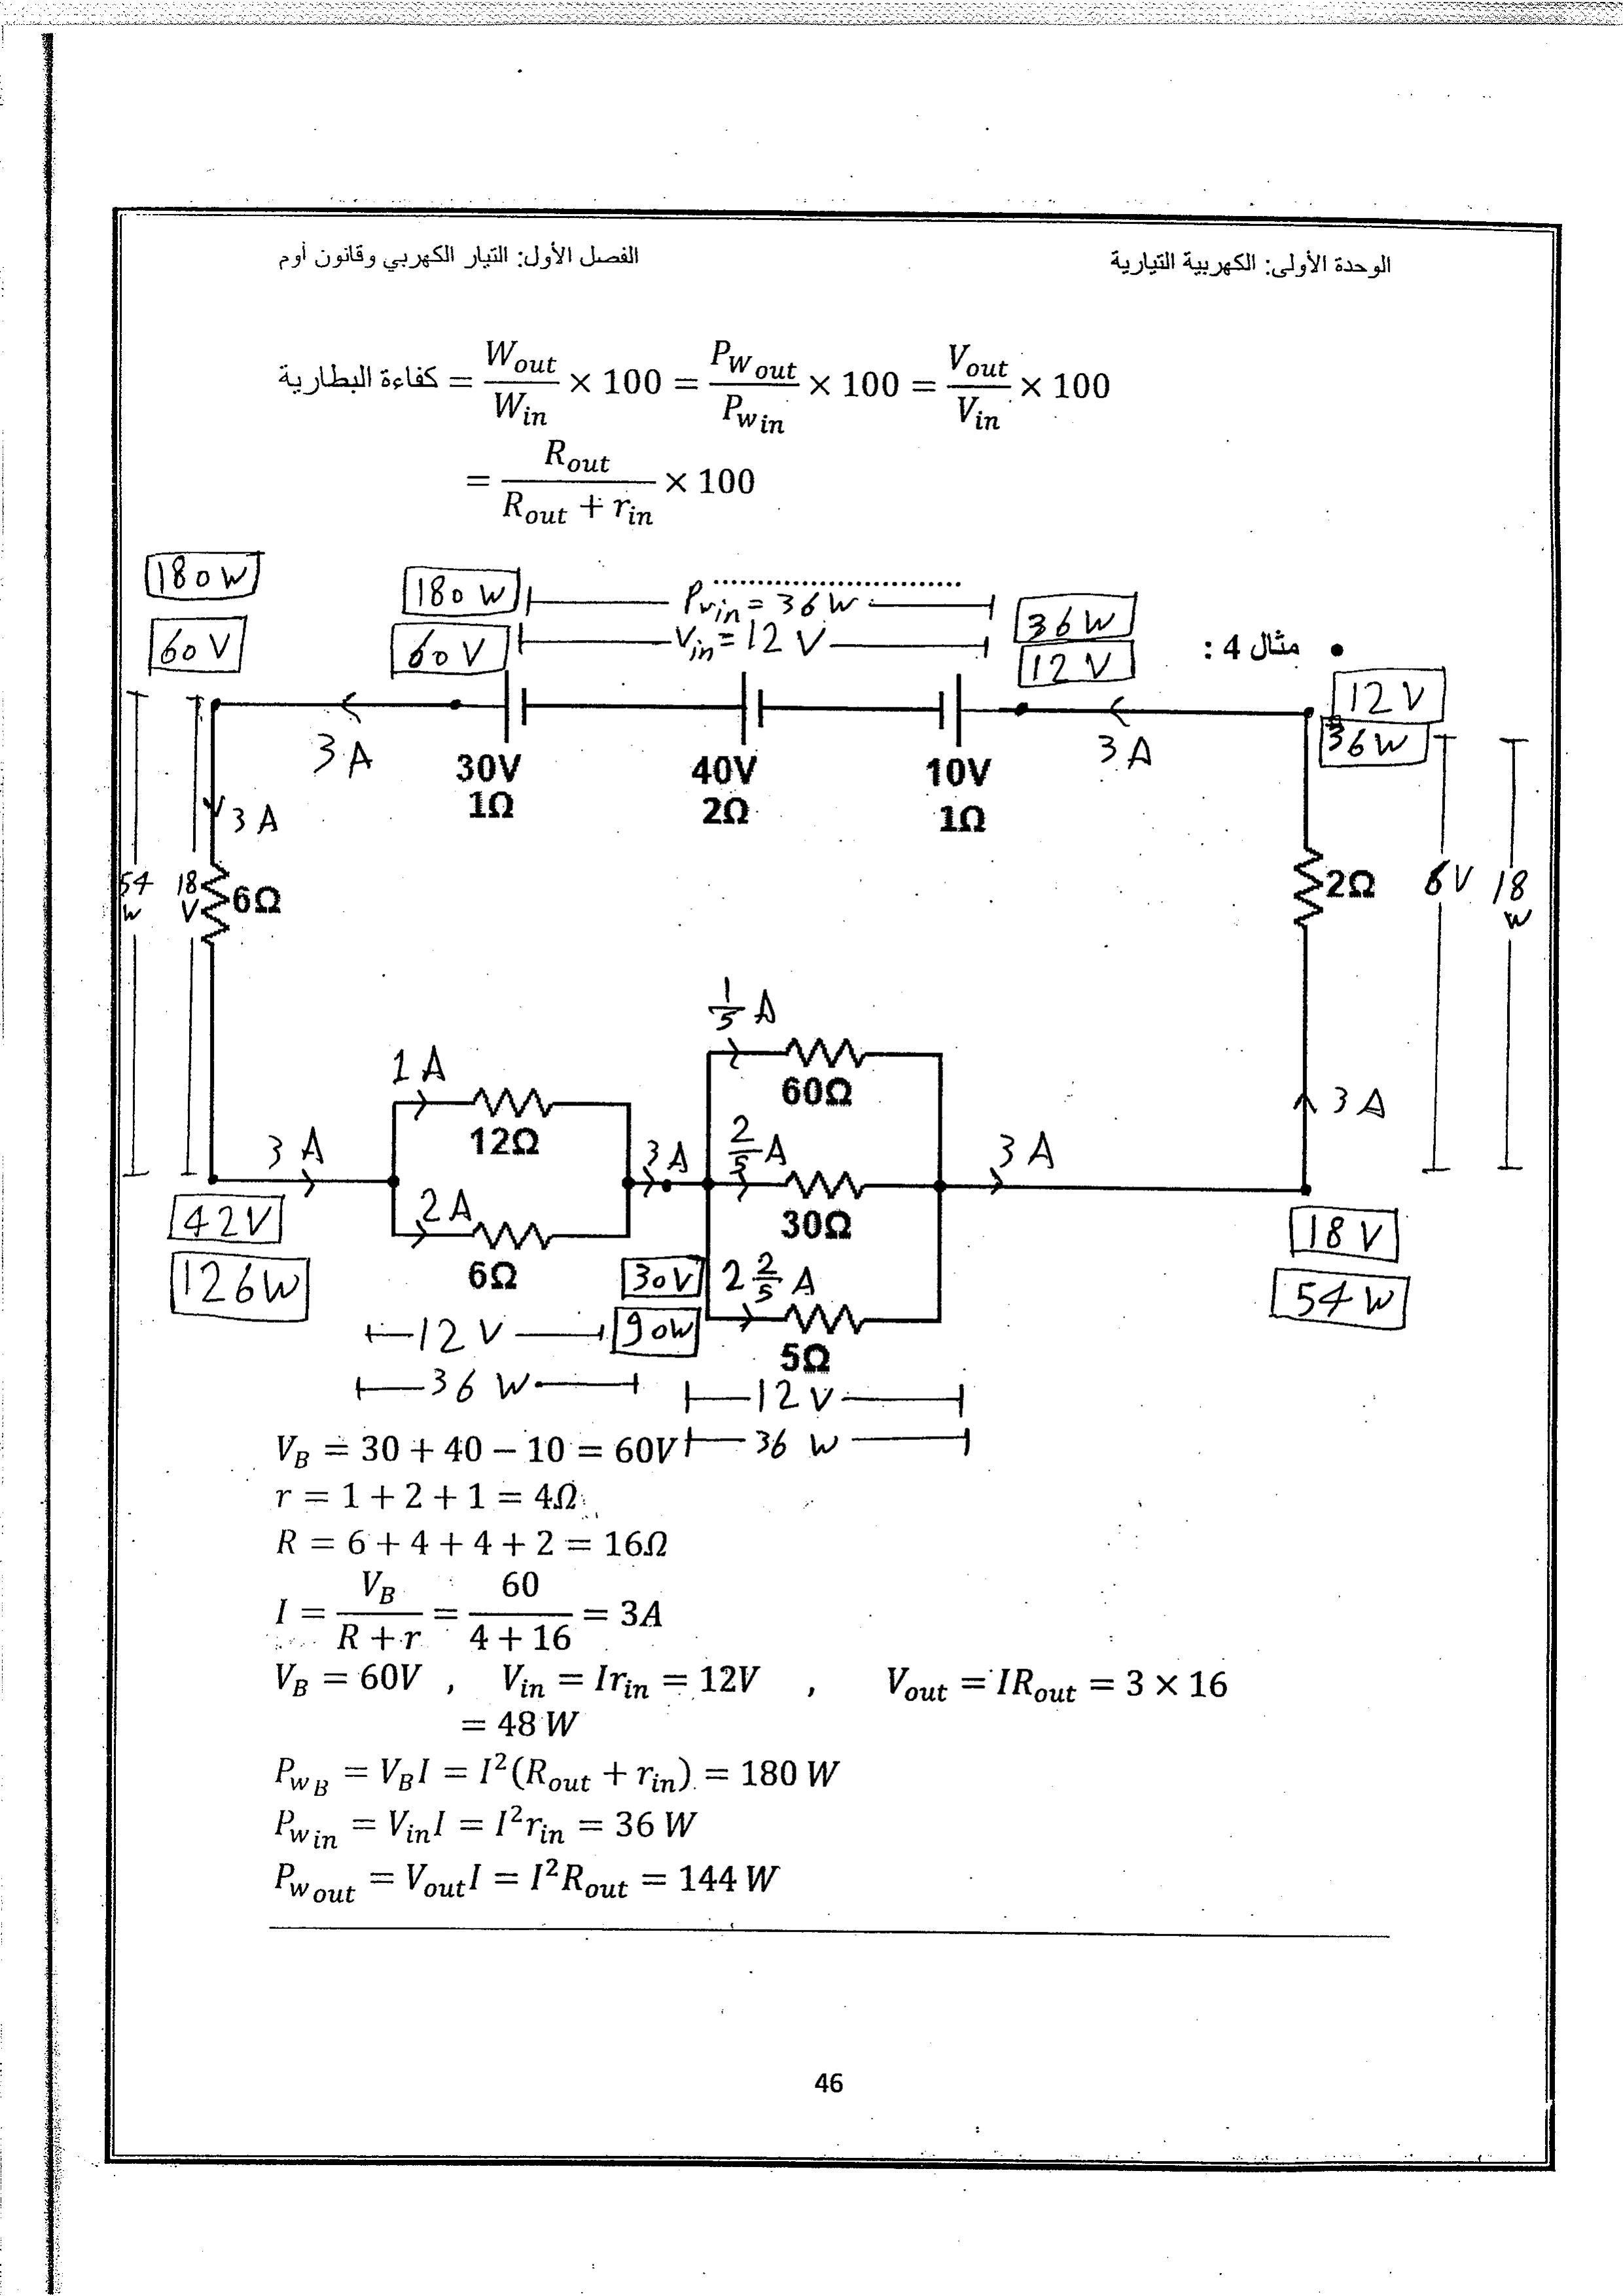 الوحدة الأولى: الكهربية التيارية
الفصل الأول: التيار الكهربي وقانون أوم
كفاءة البطارية = W_out / W_in × 100 = P_W out / P_w in × 100 = V_out / V_in × 100
= R_out / (R_out + r_in) × 100
180 W
60 V
180 W
60 V
P_w in = 36 W
V_in = 12 V
36 W
12 V
مثال 4 :
12 V
36 W
3 A
30V
1Ω
40V
2Ω
10V
1Ω
3 A
3 A
54 W
18 V
6Ω
2Ω
6 V
18 W
1/5 A
60Ω
1 A
12Ω
3 A
3 A
2/5 A
30Ω
3 A
3 A
2 A
6Ω
42V
126W
30V
90W
2 2/5 A
5Ω
18 V
54 W
12 V
36 W
12 V
36 W
V_B = 30 + 40 − 10 = 60V
r = 1 + 2 + 1 = 4Ω
R = 6 + 4 + 4 + 2 = 16Ω
I = V_B / (R + r) = 60 / (4 + 16) = 3A
V_B = 60V , V_in = Ir_in = 12V , V_out = IR_out = 3 × 16
= 48 W
P_w B = V_B I = I²(R_out + r_in) = 180 W
P_w in = V_in I = I² r_in = 36 W
P_w out = V_out I = I² R_out = 144 W
46